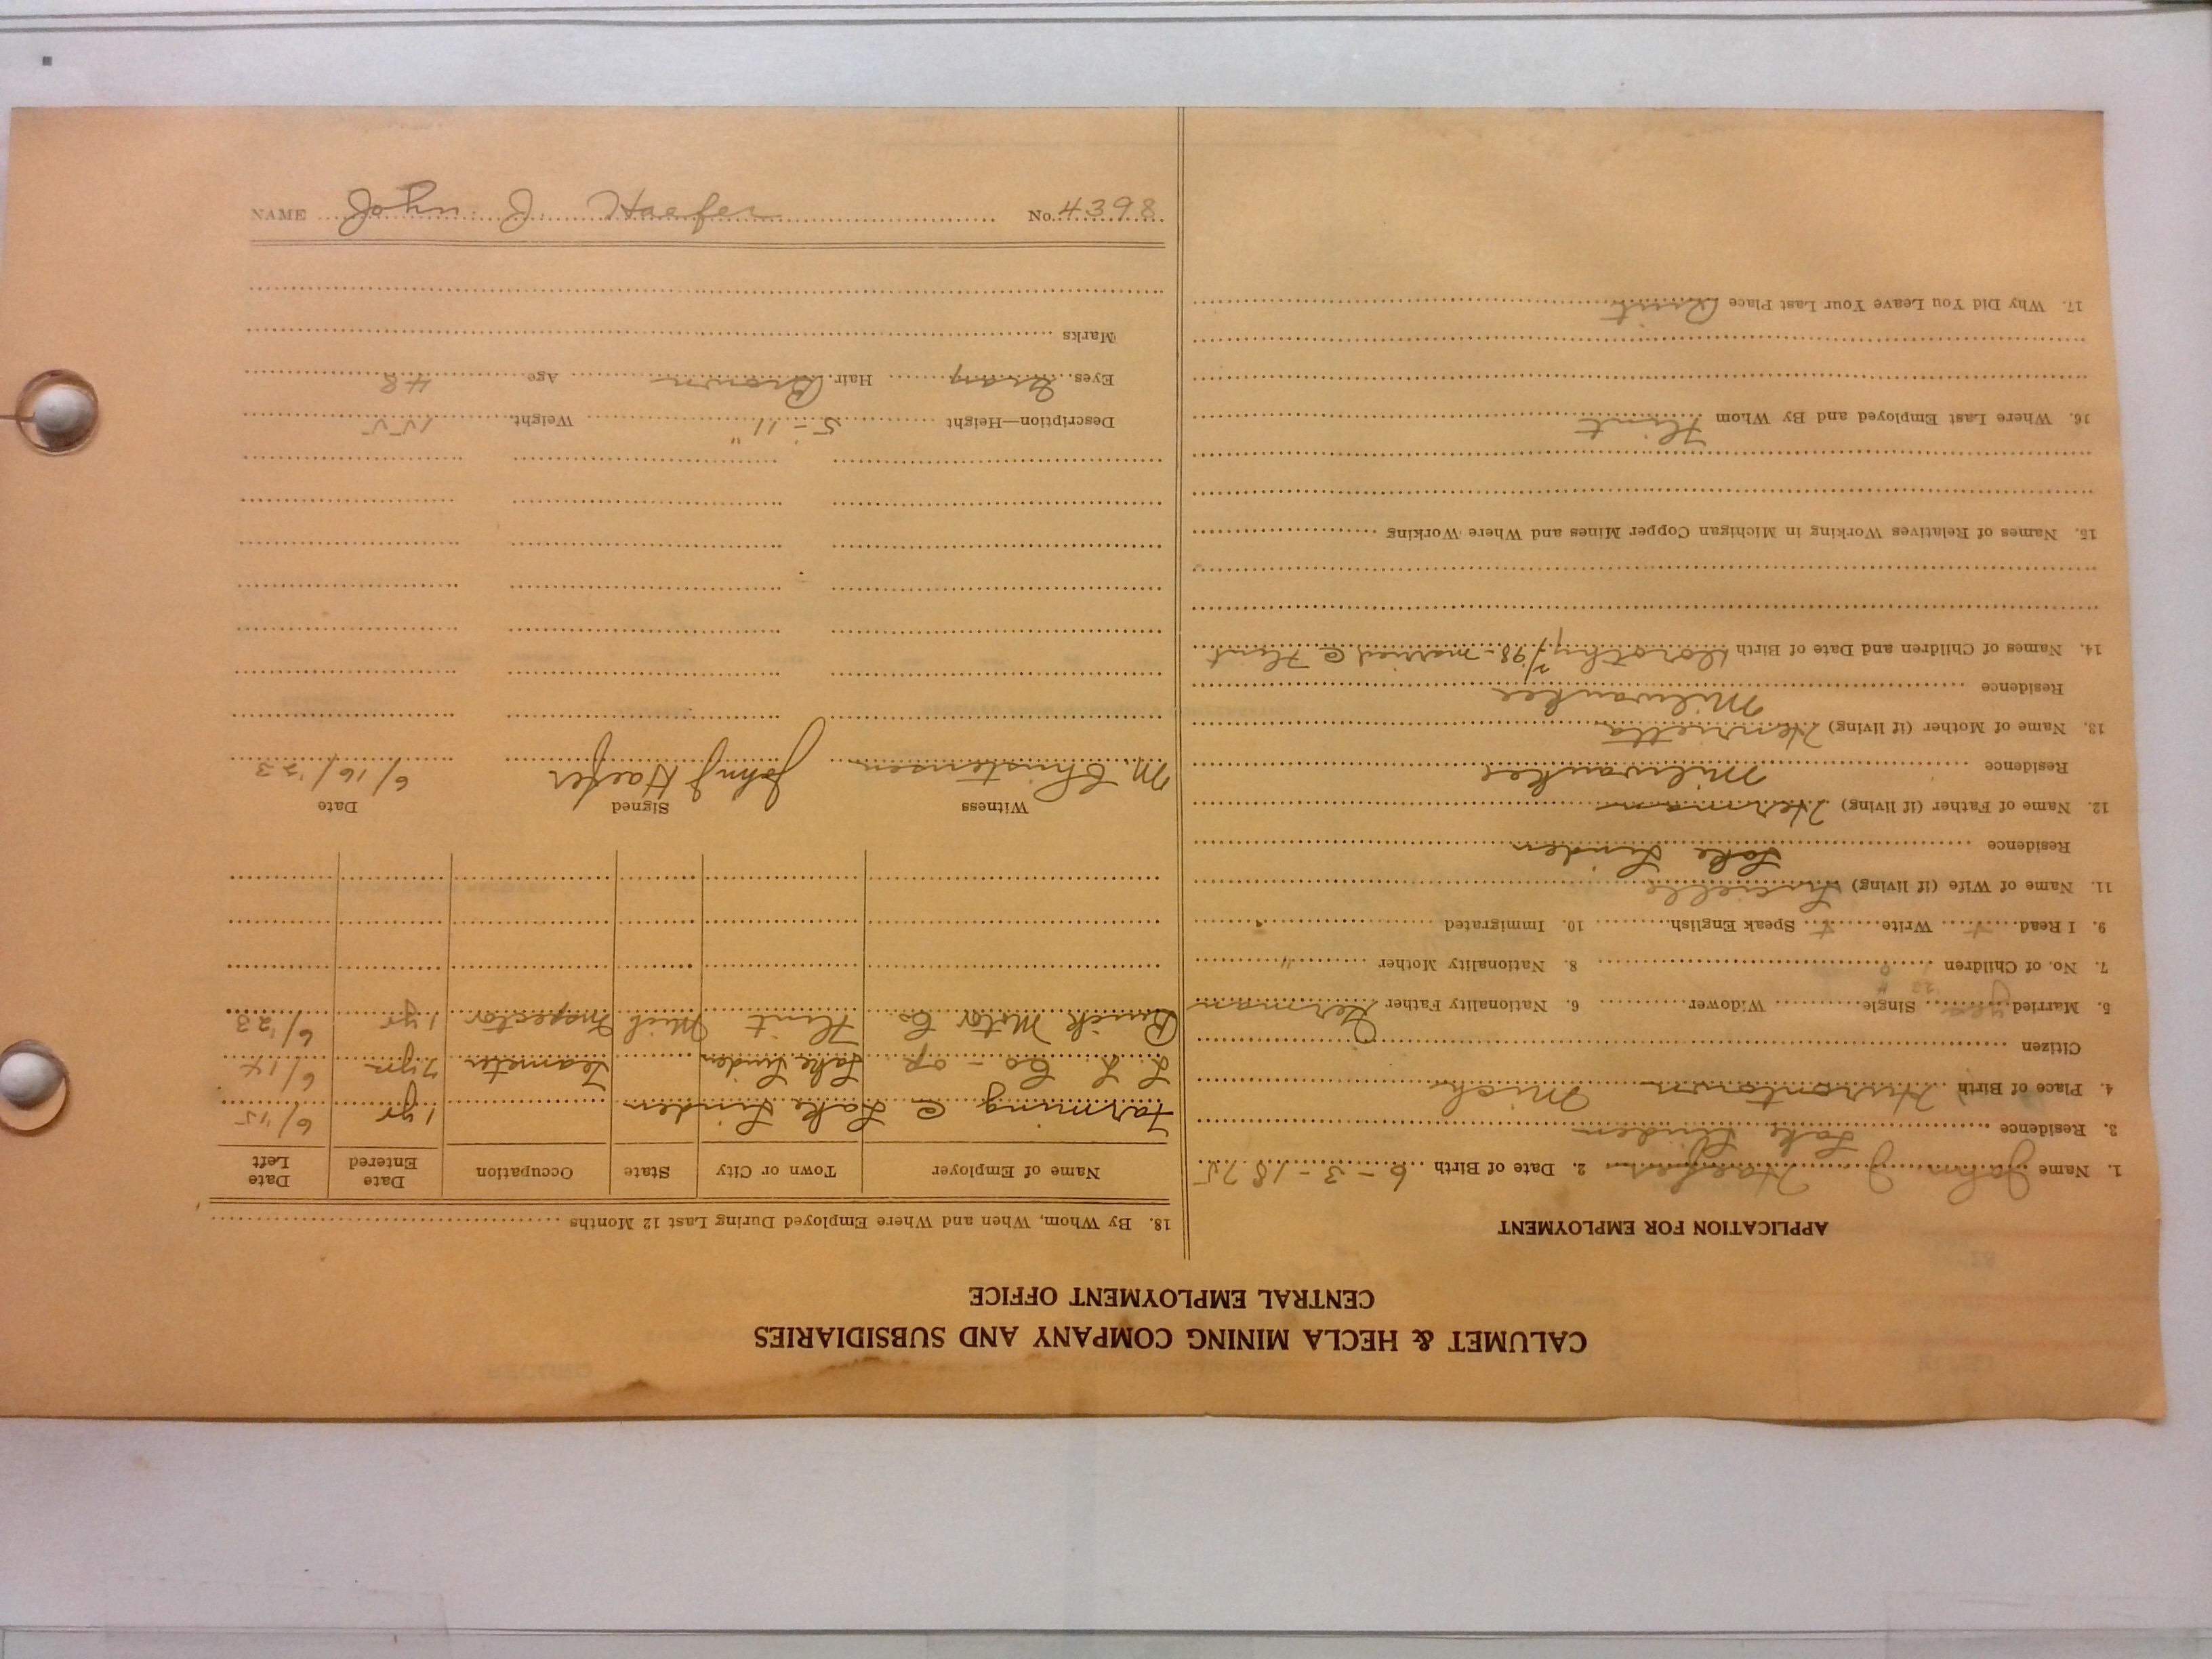 CALUMET & HECLA MINING COMPANY AND SUBSIDIARIES
CENTRAL EMPLOYMENT OFFICE
APPLICATION FOR EMPLOYMENT
1. Name John J Haefer 2. Date of Birth 6-3-1875
3. Residence Lake Linden
4. Place of Birth Hurontown Mich
Citizen
5. Married yes Single Widower 6. Nationality Father German
7. No. of Children 8. Nationality Mother "
9. I Read Write Speak English 10. Immigrated
11. Name of Wife (if living) Lucille
Residence Lake Linden
12. Name of Father (if living) Herman
Residence Milwaukee
13. Name of Mother (if living) Henrietta
Residence Milwaukee
14. Names of Children and Date of Birth Dorothy '98 - married @ Flint
15. Names of Relatives Working in Michigan Copper Mines and Where Working
16. Where Last Employed and By Whom Flint
17. Why Did You Leave Your Last Place Quit
18. By Whom, When and Where Employed During Last 12 Months
Name of Employer Town or City State Occupation Date Entered Date Left
Farming @ Lake Linden Lake Linden 1 yr 6/15
L. L. Co-op Lake Linden Teamster 7 yrs 6/14
Buick Motor Co. Flint Mich Inspector 1 yr 6/'23
Witness Signed Date
M. Christensen John J Haefer 6/16/23
Description—Height 5-11" Weight 155
Eyes Gray Hair Brown Age 48
Marks
NAME John J. Haefer No. 4398